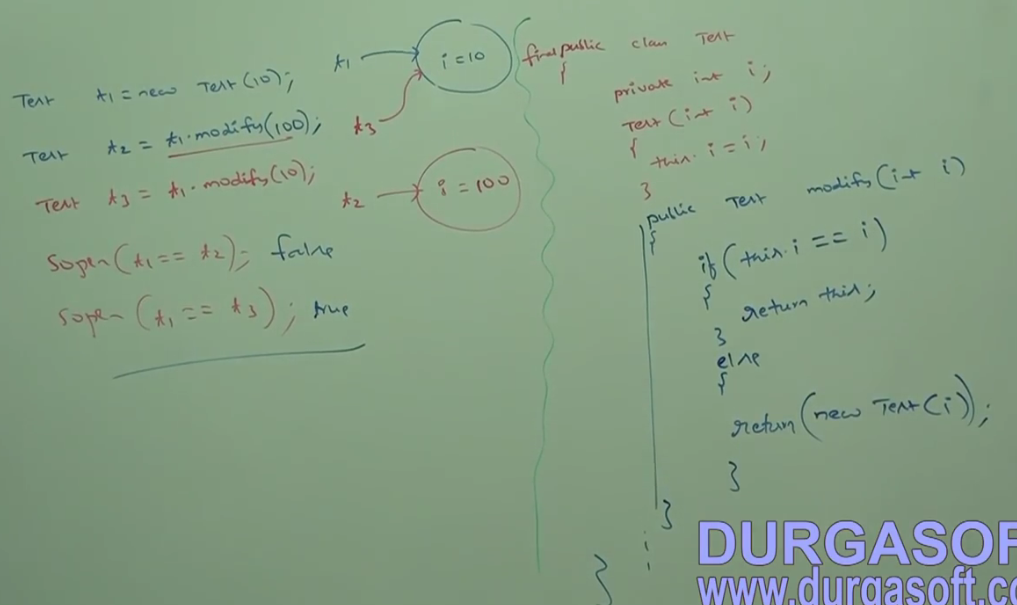 Test t1 = new Test(10);
Test t2 = t1.modify(100);
Test t3 = t1.modify(10);
Sopln(t1 == t2); false
Sopln(t1 == t3); true
t1
i = 10
t3
t2
i = 100
final public class Test
{
private int i;
Test(int i)
{
this.i = i;
}
public Test modify(int i)
{
if (this.i == i)
{
return this;
}
else
{
return(new Test(i));
}
}
}
DURGASOF
www.durgasoft.co